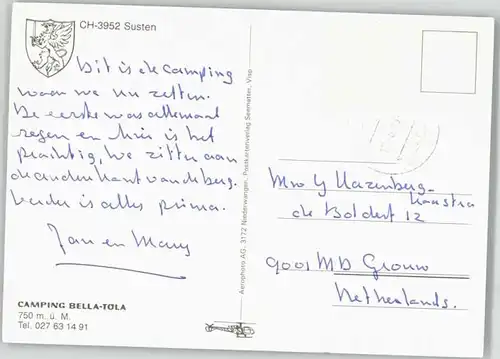 CH-3952 Susten
Dit is de Camping
waar we nu zitten.
De eerste was allemaal
regen en hier is het
prachtig, we zitten aan
de anderkant van de berg.
Verder is alles prima.
Jan en Mary
CAMPING BELLA-TOLA
750 m. ü. M.
Tel. 027 63 14 91
Aerophoto AG, 3172 Niederwangen, Postkartenverlag Seematter, Visp
Mw Y Hazenberg-
de Boldert 12
9001 MD Grouw
Netherlands.